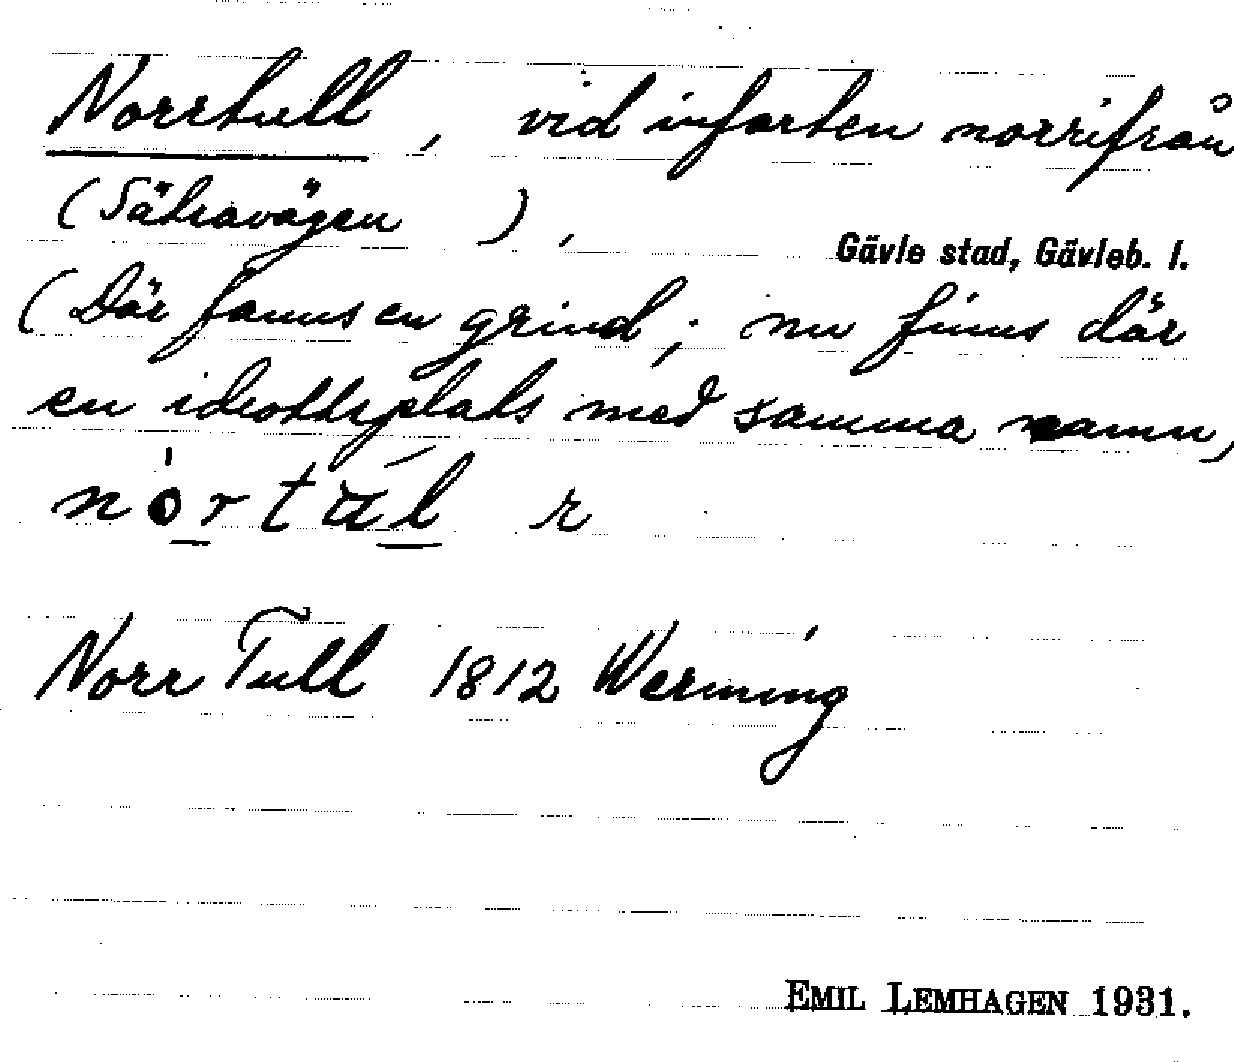 Norrtull, vid infarten norrifrån
(Sätravägen),
Gävle stad, Gävleb. l.
(Där fanns en grind; nu finns där
en idrottsplats med samma namn,
r
Norr Tull 1812 Werming
EMIL LEMHAGEN 1931.